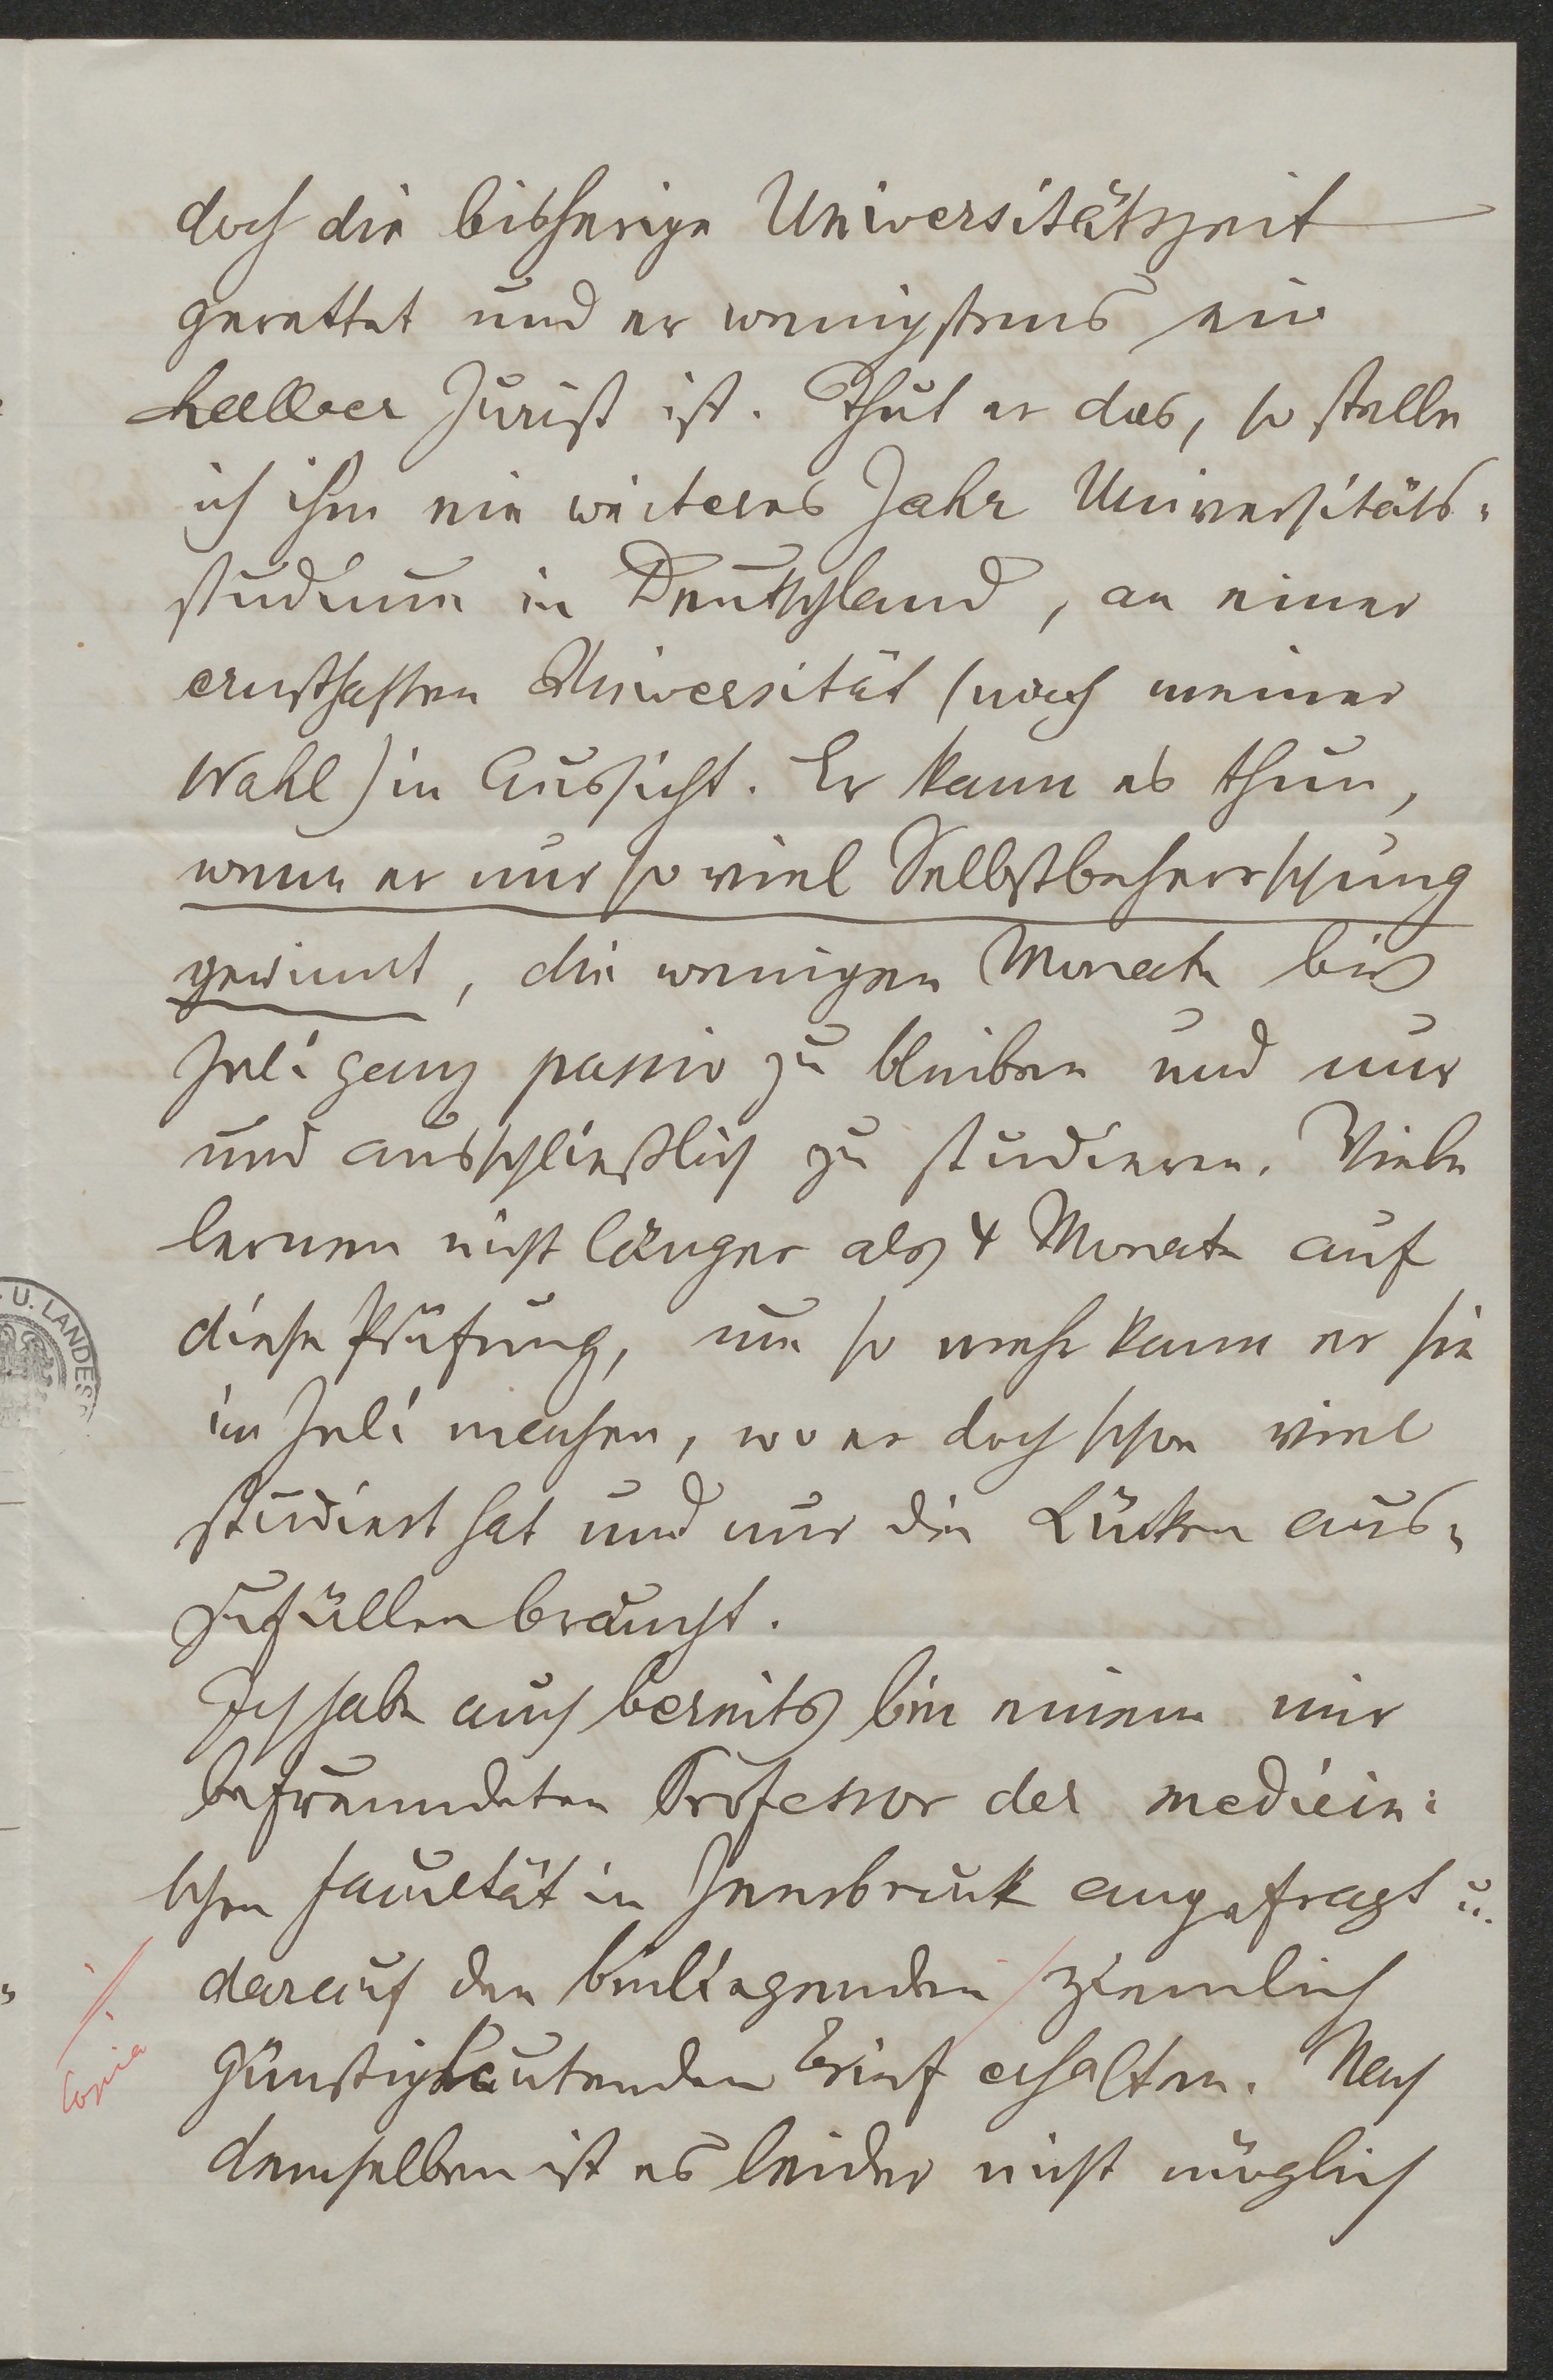 doch die bisherige Universitätszeit
gerettet und er wenigstens ein
halber Jurist ist. Thut er das, so stelle
ich ihm ein weiteres Jahr Universitäts-
studium in Deutschland, an einer
ernsthaften Universität (nach meiner
Wahl) in Aussicht. Er kann es thun,
wenn er nur so viel Selbstbeherrschung
gewinnt, die wenigen Monate bis
Juli ganz passiv zu bleiben und nur
und ausschließlich zu studieren. Viele
lernen nicht länger als 4 Monate auf
diese Prüfung, um so mehr kann er sie
im Juli machen, wo er doch schon viel
studiert hat und nur die Lücken aus-
zufüllen braucht.
Ich habe auch bereits bei einem mir
befreundeten Professor der medicini-
schen Facultät in Innsbruck angefragt u.
darauf den beiliegenden ziemlich
günstig lautenden Brief erhalten. Nach
demselben ist es leider nicht möglich
Copia
U. LANDES